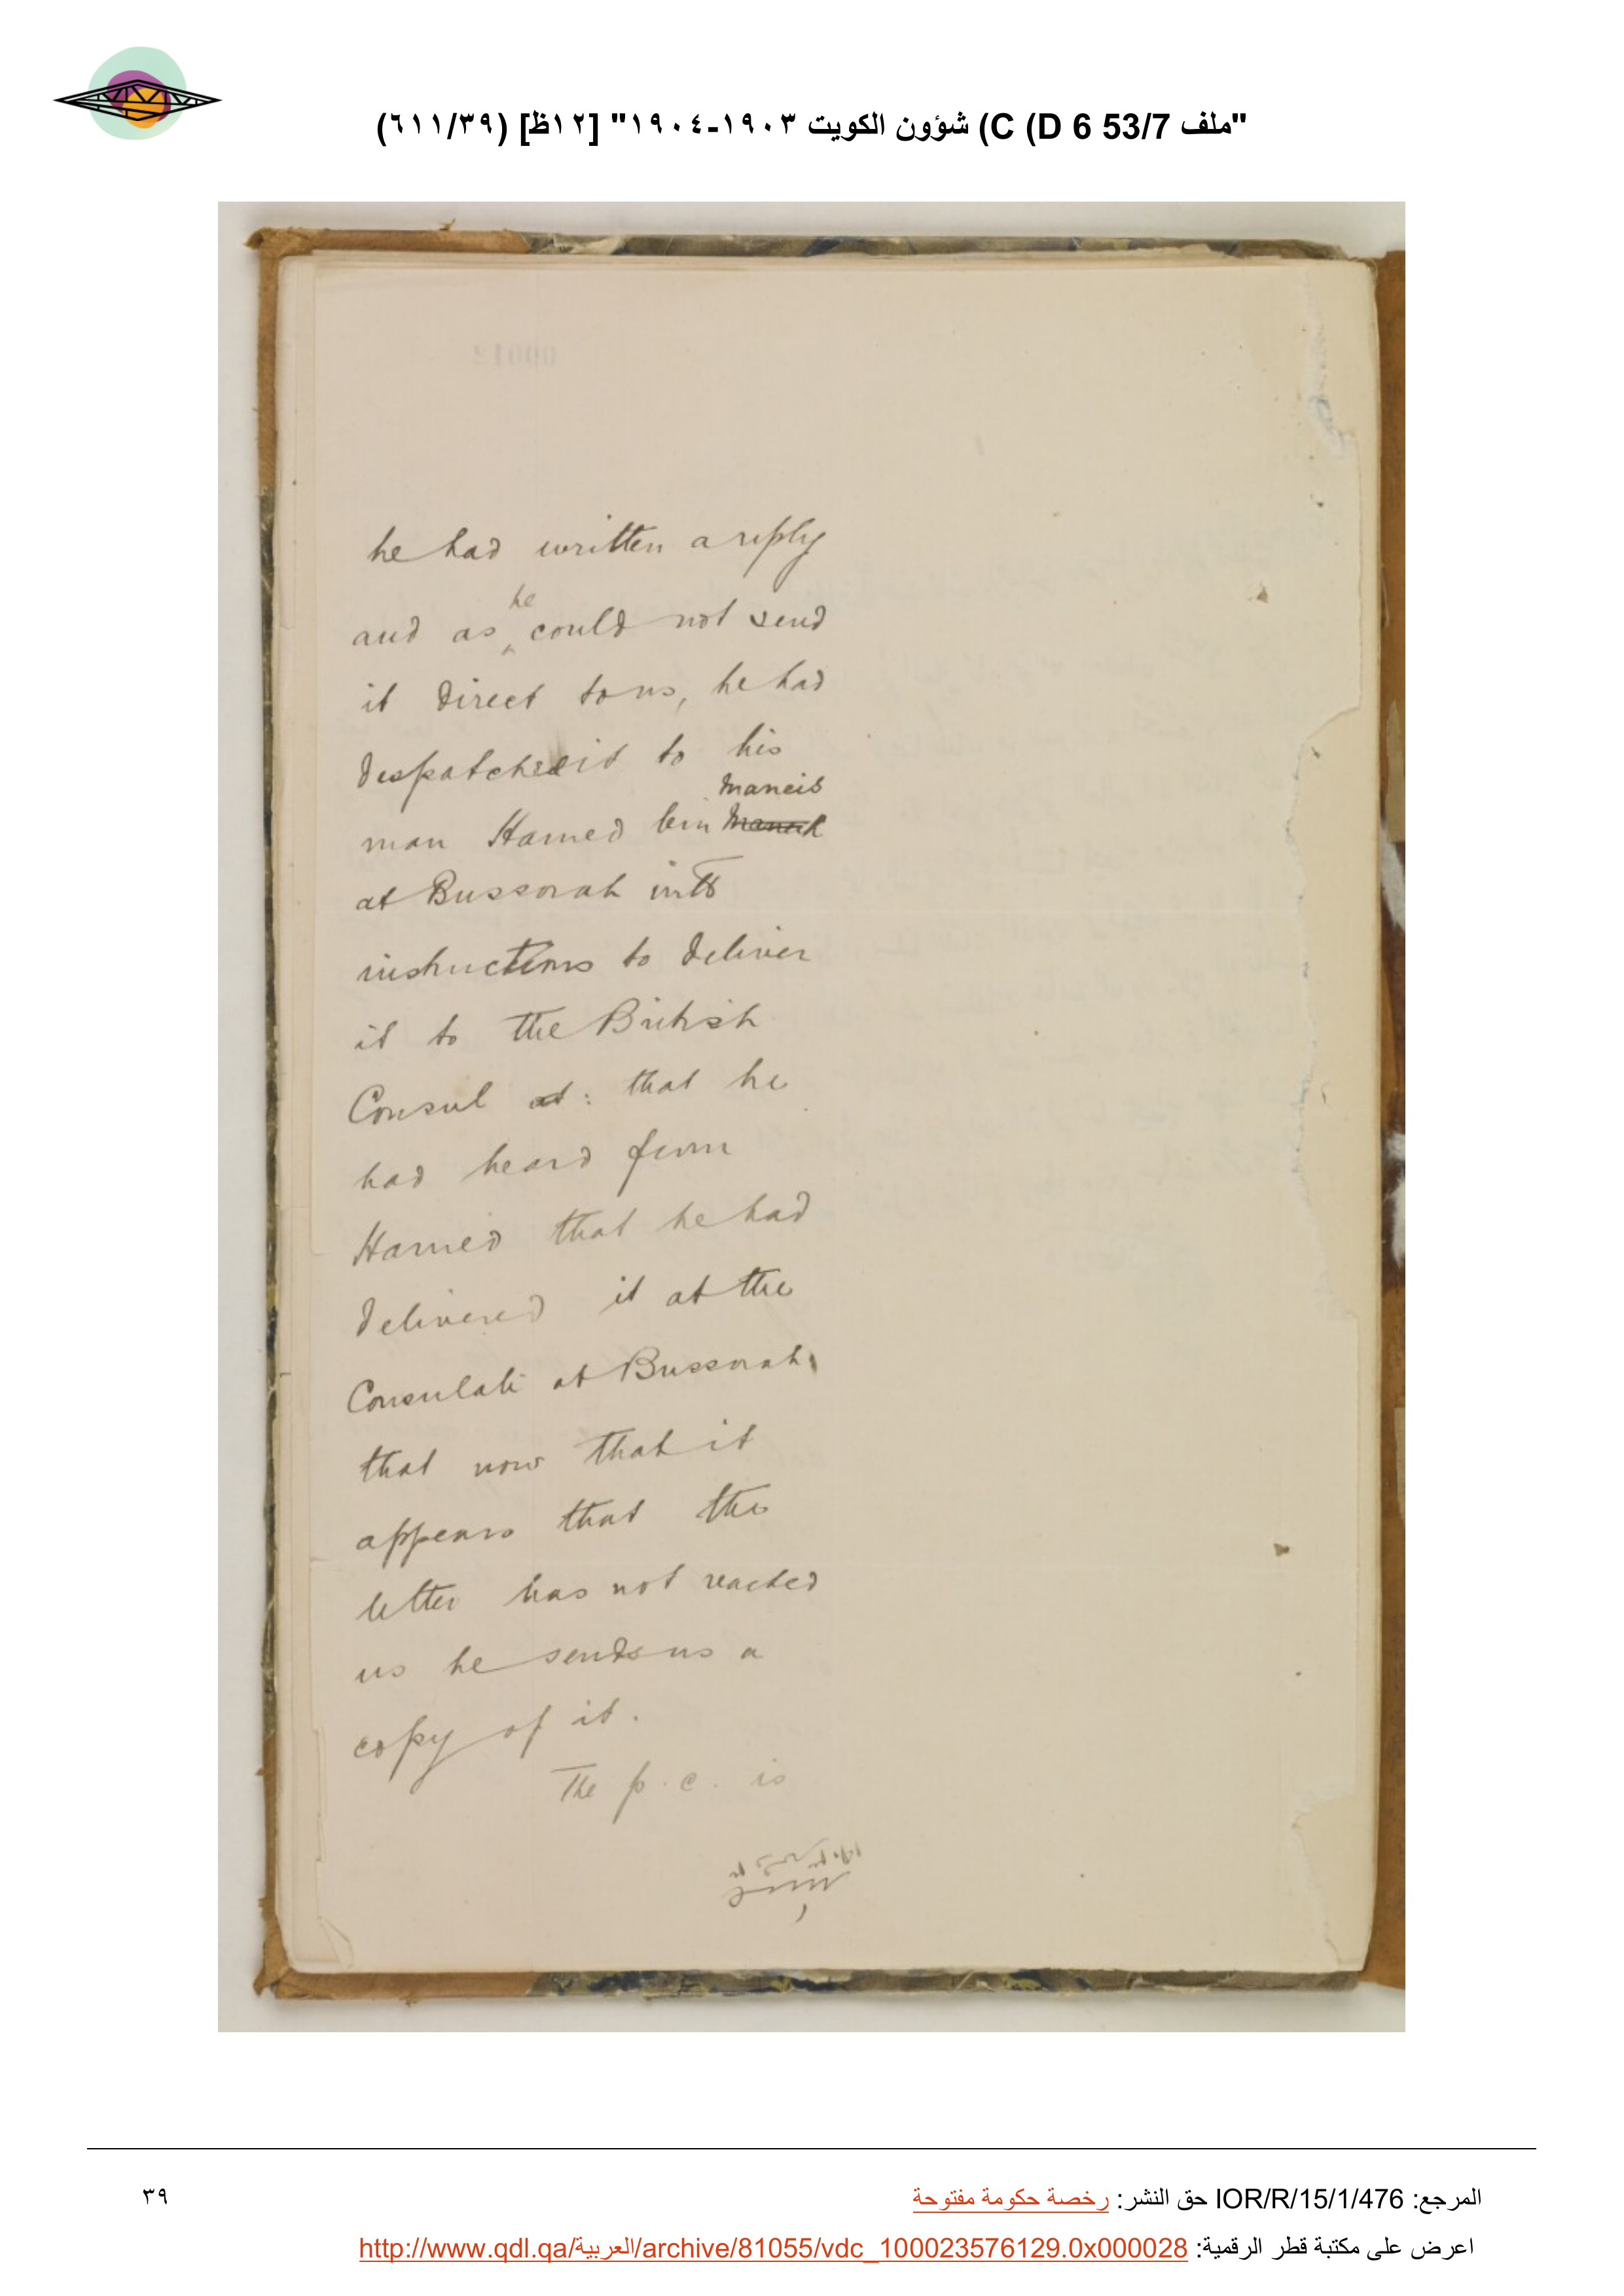 "ملف 53/7 C (D 6) شؤون الكويت ١٩٠٣-١٩٠٤" [١٢ظ] (٦١١/٣٩)
he had written a reply
and as he could not send
it direct to us, he had
despatched it to his
maneis
man Hamed bin
at Bussorah with
instructions to deliver
it to the British
Consul at: that he
had heard from
Hamed that he had
delivered it at the
Consulate at Bussorah
that now that it
appears that the
letter has not reached
us he sends us a
copy of it.
The p.c. is
المرجع: IOR/R/15/1/476 حق النشر: رخصة حكومة مفتوحة
٣٩
اعرض على مكتبة قطر الرقمية: http://www.qdl.qa/العربية/archive/81055/vdc_100023576129.0x000028